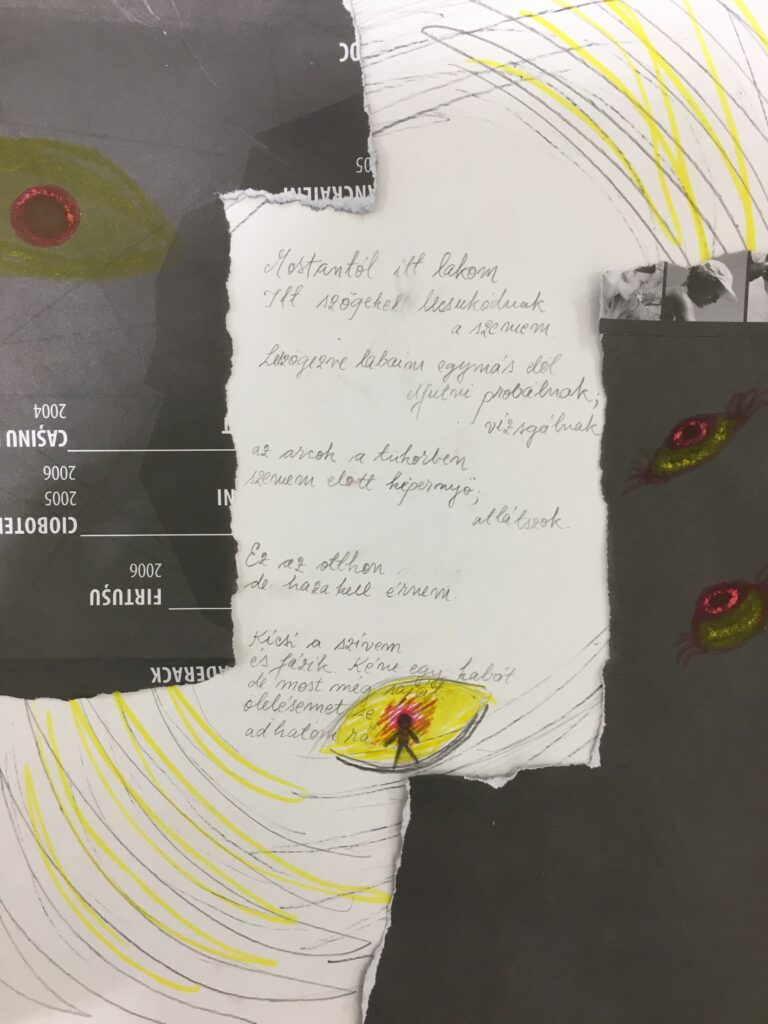 OC
05
ANCRAIENI
Mostantól itt lakom
Itt szögekel lecsukódnak
a szemem.
Leszögezve labaim egymás elöl
elfutni probálnak;
vizsgálnak
az arcok a tükörben
szemem elött képernyő;
atlátszok.
Ez az otthon
de haza kell érnem
Kicsi a szívem
és fázik. Kéne egy kabát
de most még
ölelésemet se
adhatom rá
2004
CAŞINU
2006
2005
CIOBOTE
NI
2006
FIRTUŞU
ADERACK